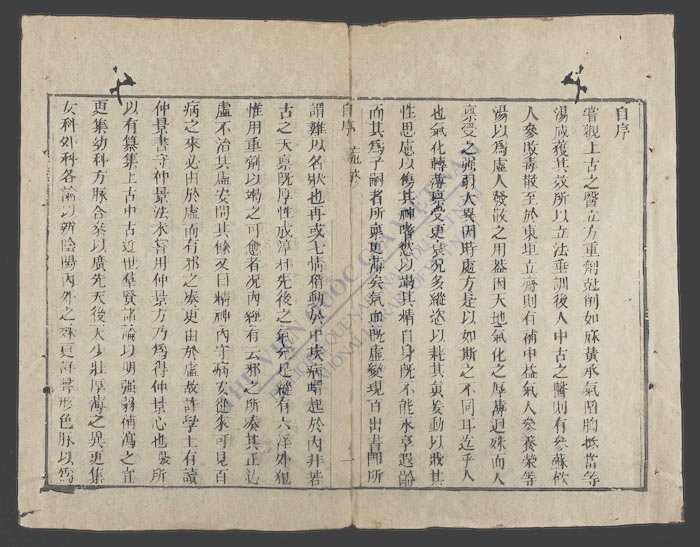 自序
嘗觀上古之醫立方重劑尅削如麻黃承氣陷胸抵當等
湯咸獲其效所以立法垂訓後人中古之醫則有參蘇飲
人參敗毒散至於東垣立齋則有補中益氣人參養榮等
湯以爲虛人發散之用蓋因天地氣化之厚薄迥殊而人
禀受之強弱大異因時處方是以如斯之不同耳迄乎人
也氣化轉薄禀受更衰況多縱慾以耗其真妄動以戕其
性思慮以傷其神嗜慾以竭其精自身既不能永享遐齡
而其爲子嗣者所禀更薄矣氣血既虛變現百出書門所
自序
謂難以名狀也再或七情稍動於中疾病蝟起於內非若
古之天禀既厚性成淳朴先後之氣充足縱有六淫外犯
惟用重劑以竭之可愈者況內經有云邪之所湊其正必
虛不治其虛安問其餘又曰精神內守病安從來可見百
病之來必由於虛而有邪之湊更由於虛故許學士有讀
仲景書守仲景法未嘗用仲景方乃爲得仲景心也 所
以有纂集上古中古近世群賢諸論以明強弱補瀉之宜
更集幼科方脉合參以廣先天後天少壯厚薄之異更集
女科外科各論以 陰陽內外之殊更詳 形色脉以爲
THƯ VIỆN QUỐC GIA VIỆT NAM